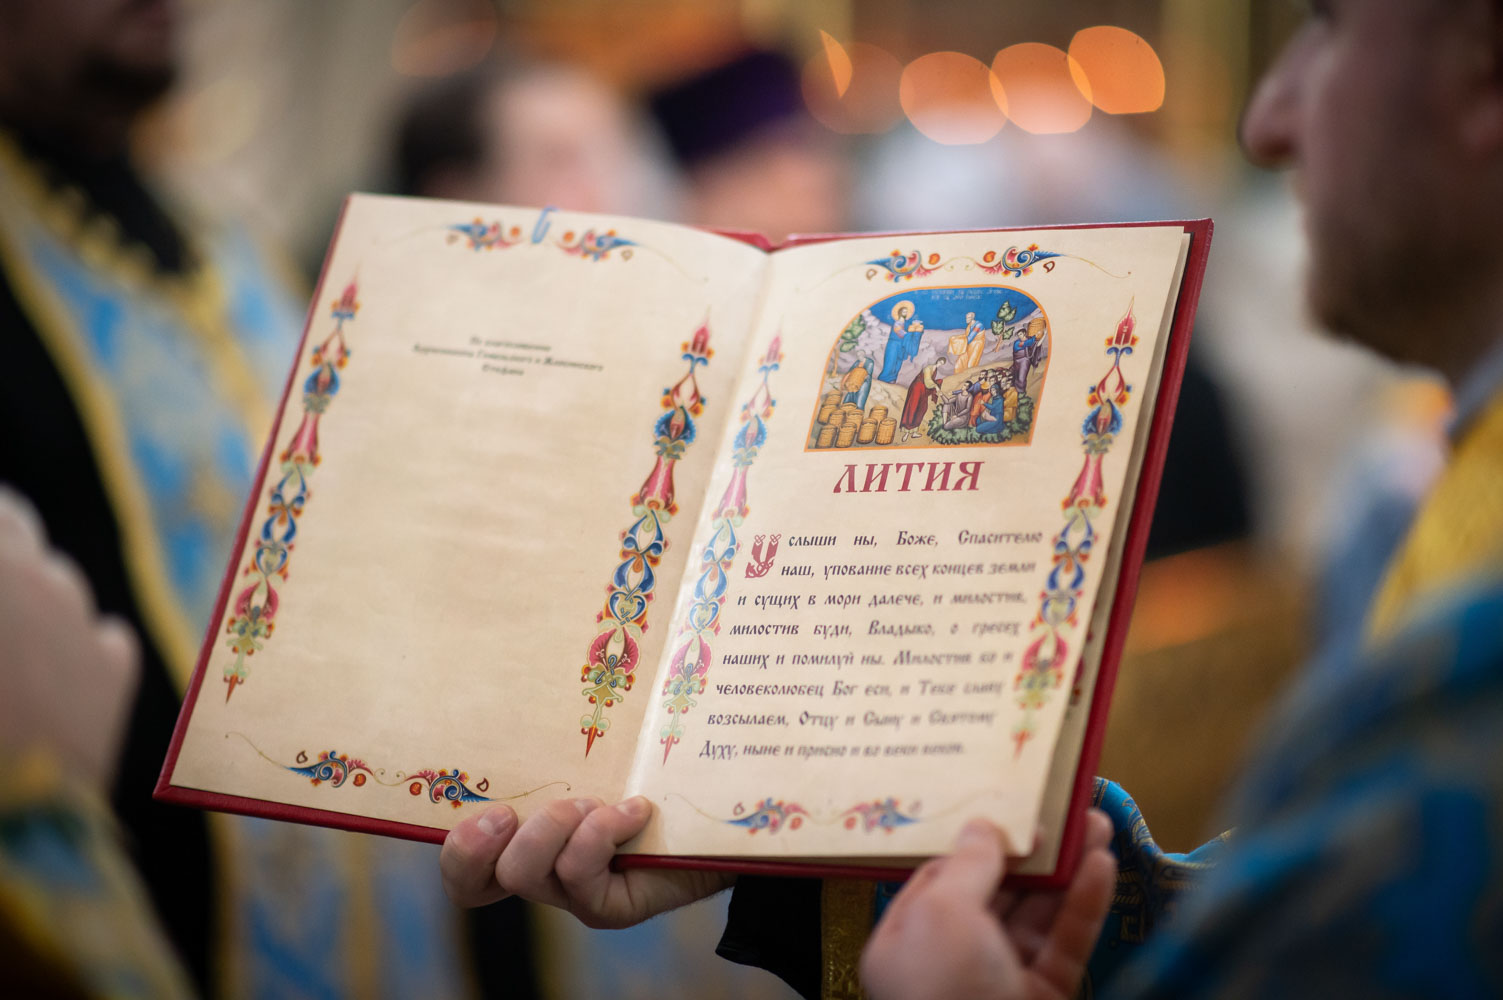 По благословению
Архиепископа Гомельского и Жлобинского
Стефана
ЛИТИЯ
Услыши ны, Боже, Спасителю
наш, упование всех концев земли
и сущих в мори далече, и милостив,
милостив буди, Владыко, о гресех
наших и помилуй ны. Милостив бо и
человеколюбец Бог еси, и Тебе славу
возсылаем, Отцу и Сыну и Святому
Духу, ныне и присно и во веки веков.